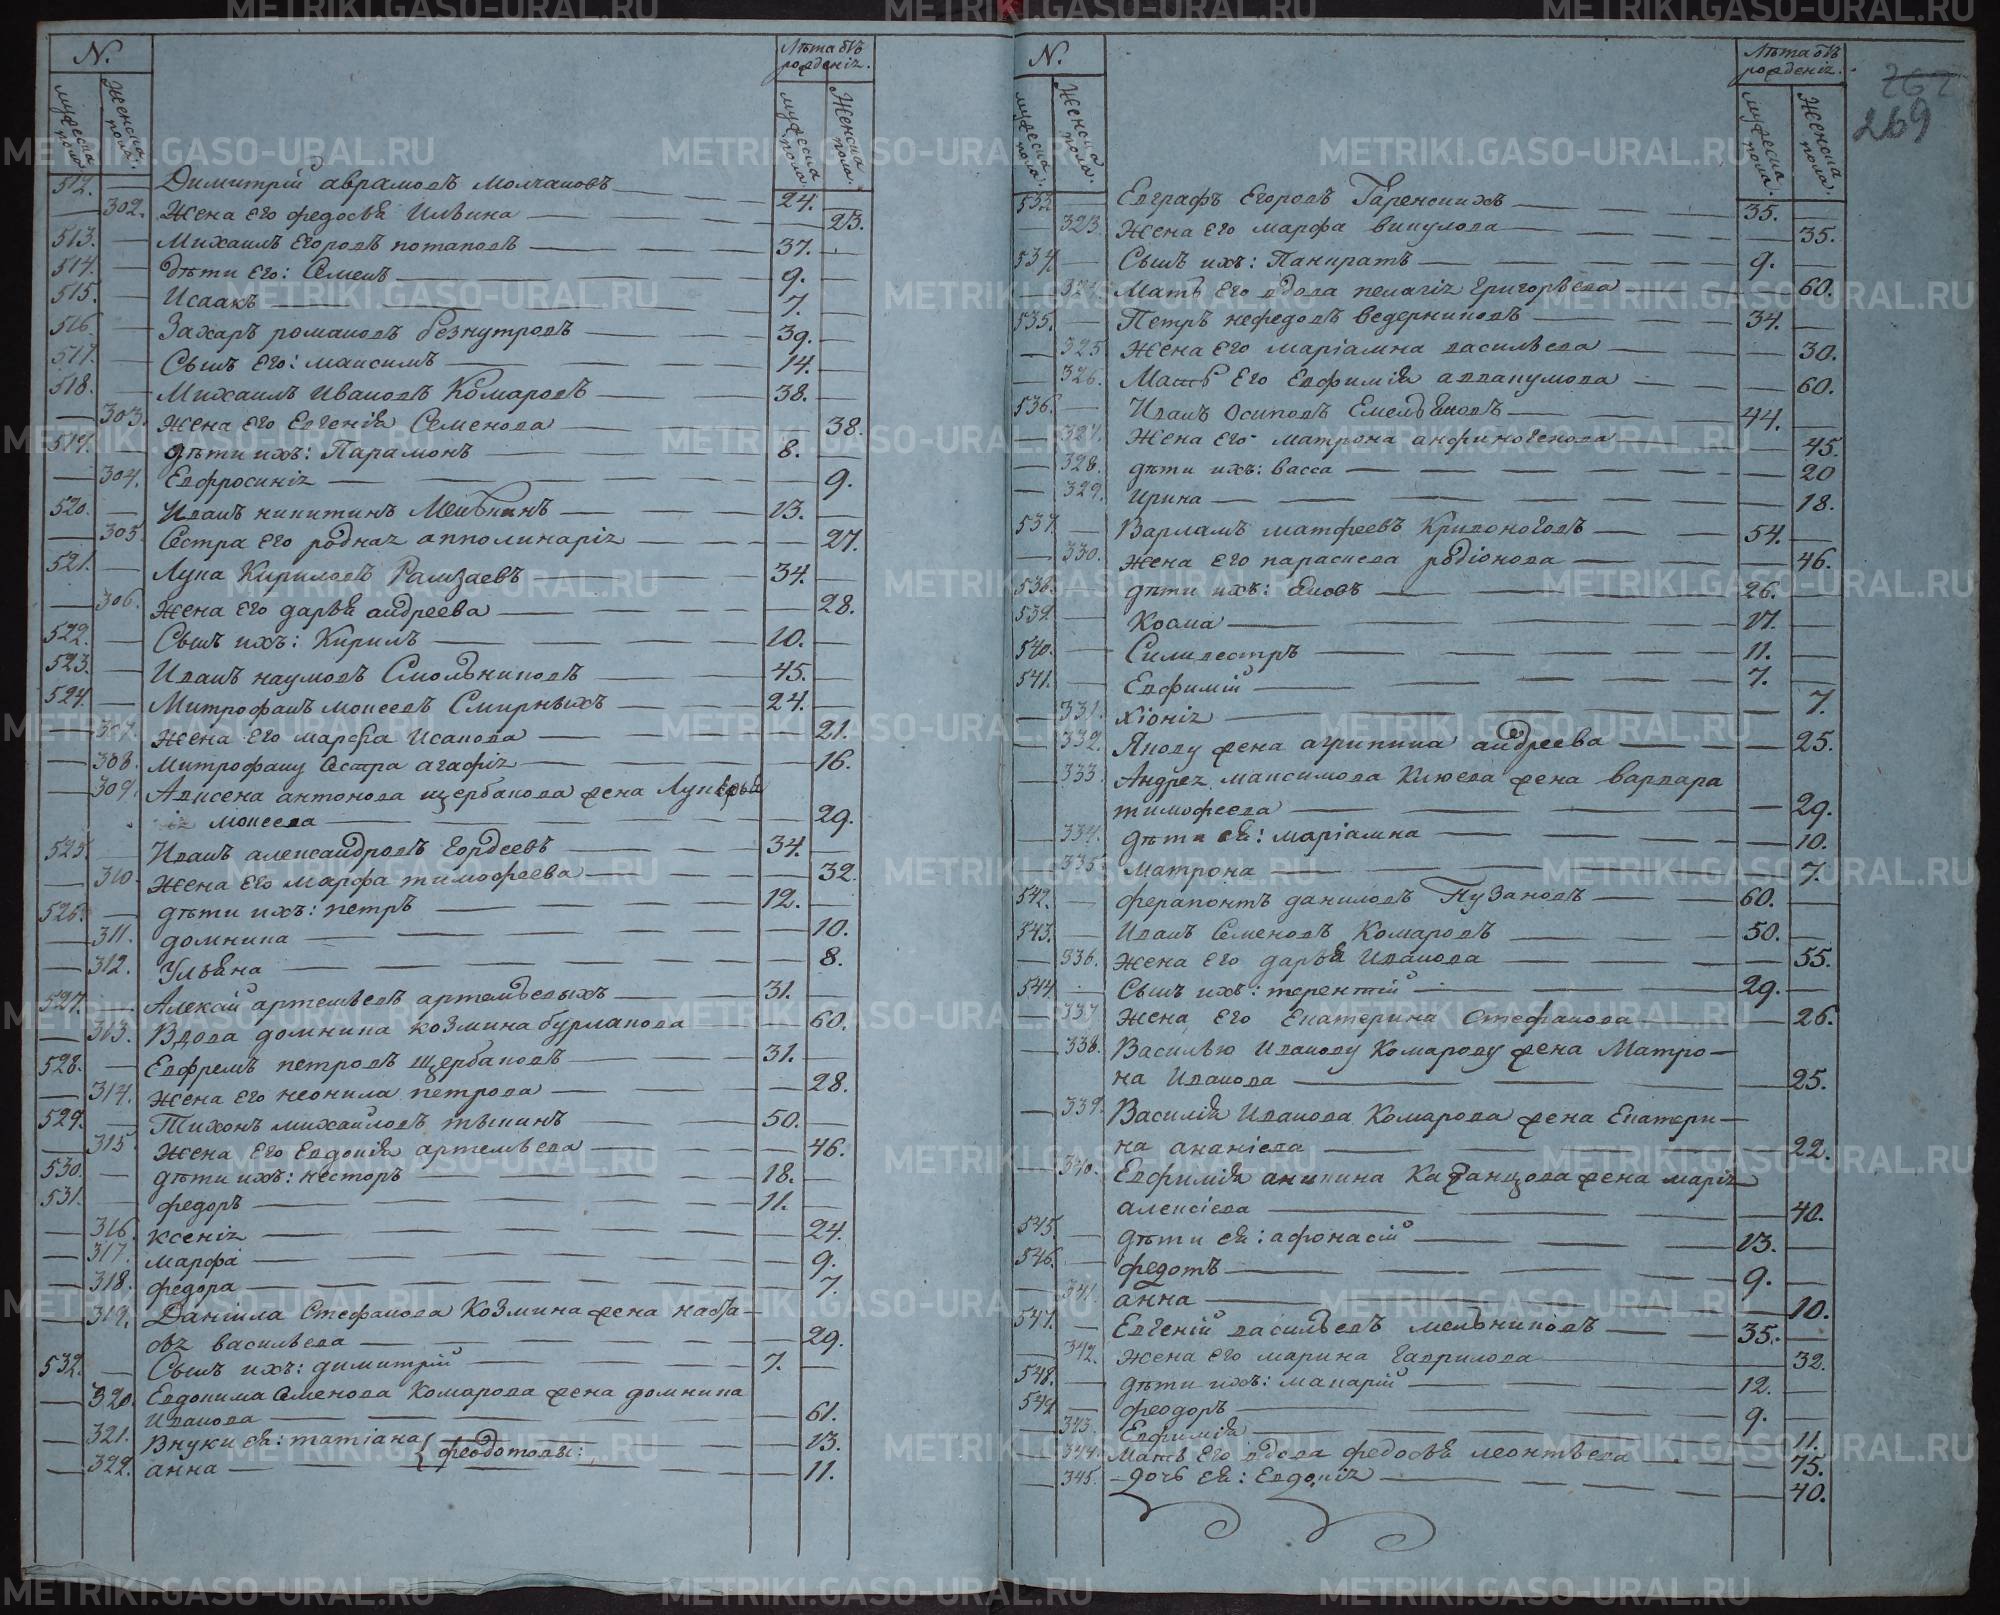 N.
Лѣта отъ рожденія.
мужеска пола.
женска пола.
мужеска пола
женска пола.
512. — Димитрій аврамовъ молчановъ — 24. —
— 302. Жена его федосья Ильина — 23.
513. — Михаилъ Егоровъ потаповъ — 37. —
514. — дѣти его: Семенъ — 9. —
515. — Исаакъ — 7. —
516. — Захаръ романовъ безкутровъ — 39. —
517. — Сынъ его: максимъ — 14. —
518. — Михаилъ Ивановъ Комаровъ — 38. —
— 303. Жена его Евгенія Семенова — 38.
519. — дѣти ихъ: Парамонъ — 8. —
— 304. Евфросинія — 9.
520. — Иванъ никитинъ — 13. —
— 305. Сестра его родная апполинарія — 27.
521. — Лука Кириловъ Рамзаевъ — 34. —
— 306. Жена его дарья андреева — 28.
522. — Сынъ ихъ: Кирилъ — 10. —
523. — Иванъ наумовъ Смольниковъ — 45. —
524. — Митрофанъ моисеевъ Смирныхъ — 24. —
— 307. Жена его марфа Исакова — 21.
— 308. Митрофану Сестра агафія — 16.
— 309. антонова щербакова жена
моисеева — 29.
525. — Иванъ александровъ Гордеевъ — 34. —
— 310. Жена его марфа тимофеева — 32.
526. — дѣти ихъ: петръ — 12. —
— 311. домника — 10.
— 312. Ульяна — 8.
527. — Алексій артемьевъ артемьевыхъ — 31. —
— 313. Вдова домника козмина бурлакова — 60.
528. — Евфремъ петровъ щербаковъ — 31. —
— 314. Жена его неонила петрова — 28.
529. — Тихонъ михайловъ — 50. —
— 315. Жена его Евдокія артемьева — 46.
530. — дѣти ихъ: несторъ — 18. —
531. — федоръ — 11. —
— 316. ксенія — 24.
— 317. марфа — 9.
— 318. федора — 7.
— 319. Даніила Стефанова Козмина жена
васильева — 29.
532. — Сынъ ихъ: димитрій — 7. —
— 320. Евдокима Семенова Комарова жена домника
Иванова — 61.
— 321. Внуки ея: татіана { феодотовы: — 13.
— 322. анна — 11.
N.
Лѣта отъ рожденія.
мужеска пола.
женска пола.
мужеска пола.
женска пола.
262
269
533. — Евграфъ Егоровъ — 35. —
— 323. Жена его марфа викулова — 35.
534. — Сынъ ихъ: Панкратъ — 9. —
— 324. Мать его вдова пелагія григорьева — 60.
535. — Петръ нефедовъ ведерниковъ — 34. —
— 325. Жена его маріамна васильева — 30.
— 326. Мать его Евфимія аввакумова — 60.
536. — Иванъ осиповъ Емельяновъ — 44. —
— 327. Жена его матрона анфиногенова — 45.
— 328. дѣти ихъ: васса — 20
— 329. ирина — 18.
537. — Варламъ матфеевъ Кривоноговъ — 54. —
— 330. Жена его параскева родіонова — 46.
538. — дѣти ихъ: Яковъ — 26. —
539. — Козма — 17. —
540. — Силивестръ — 11. —
541. — Евфимій — 7. —
— 331. хіонія — 7.
— 332. Якову жена агрипина андреева — 25.
— 333. Андрея максимова Клюева жена варвара
тимофеева — 29.
— 334. дѣти ея: маріамна — 10.
— 335. матрона — 7.
542. — ферапонтъ даниловъ Пузановъ — 60. —
543. — Иванъ Семеновъ Комаровъ — 50. —
— 336. Жена его дарья Иванова — 55.
544. — Сынъ ихъ: терентій — 29. —
— 337. Жена его Екатерина Стефанова — 26.
— 338. Василью Иванову Комарову жена Матро-
на Иванова — 25.
— 339. Василія Иванова Комарова жена Екатери-
на ананіева — 22.
— 340. Евфимія аникина Казанцова жена марія
алексіева — 40.
545. — дѣти ея: афонасій — 13. —
546. — федотъ — 9. —
— 341. анна — 10.
547. — Евгеній васильевъ мельниковъ — 35. —
— 342. Жена его марина гаврилова — 32.
548. — дѣти ихъ: макарій — 12. —
549. — феодоръ — 9. —
— 343. Евфимія — 11.
— 344. Мать его вдова федосья леонтьева — 75.
— 345. дочь ея: Евдокія — 40.
METRIKI.GASO-URAL.RU